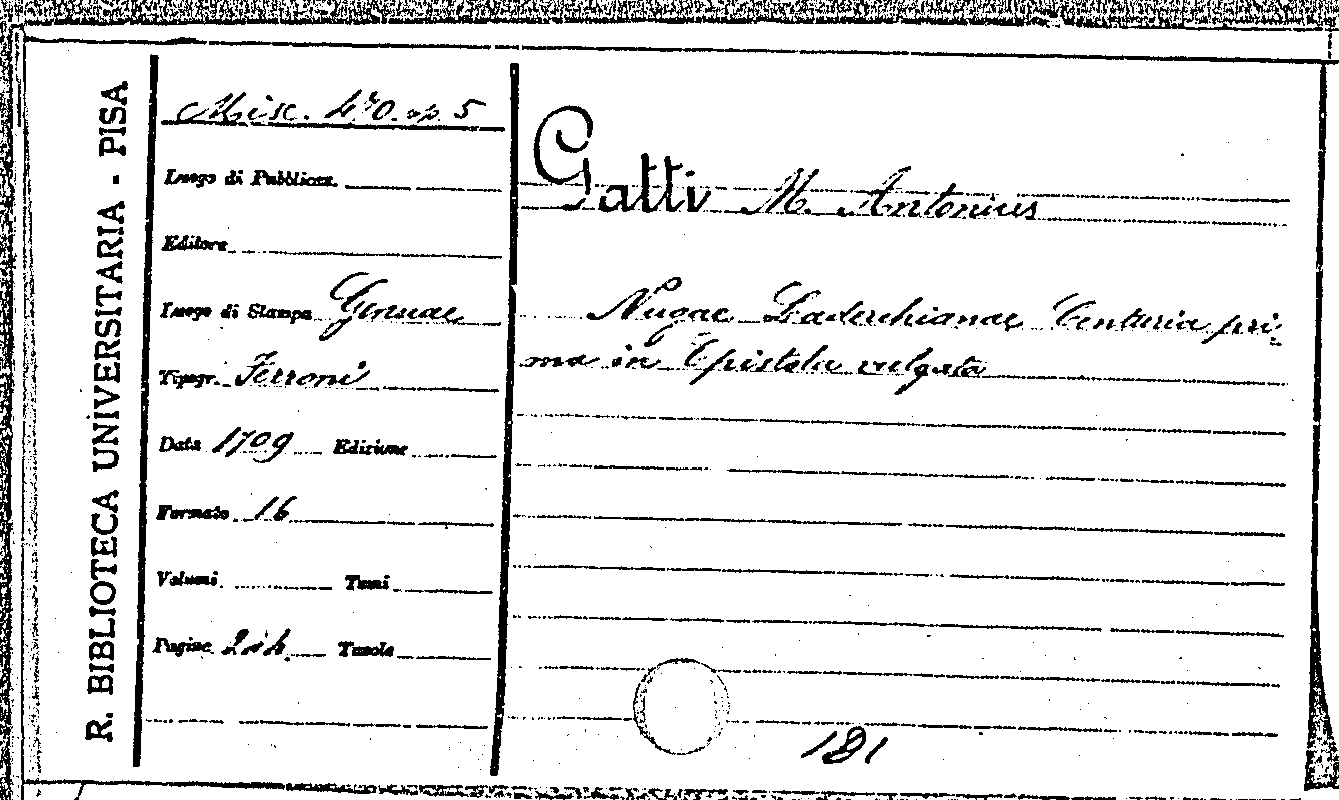 R. BIBLIOTECA UNIVERSITARIA - PISA
Misc. 470. op. 5
Luogo di Pubblicaz.
Editore
Luogo di Stampa Genuae
Tipogr. Ferroni
Data 1709 Edizione
Formato 16
Volumi Tomi
Pagine Tavole
Gatti M. Antonius
Nugae Laderchianae Centuria pri-
ma in Epistola vulgata
181